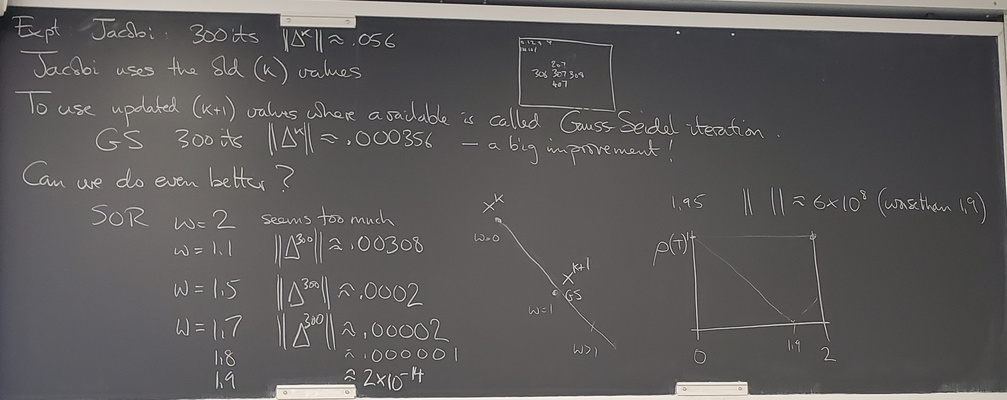 Expt Jacobi: 300 its ||Δᴷ|| ≈ .056
Jacobi uses the old (k) values
207
306 307 308
407
To use updated (k+1) values where available is called Gauss-Seidel iteration.
GS 300 its ||Δᴷ|| ≈ .000356 — a big improvement!
Can we do even better?
SOR w = 2 seems too much
w = 1.1 ||Δ³⁰⁰|| ≈ .00308
w = 1.5 ||Δ³⁰⁰|| ≈ .0002
w = 1.7 ||Δ³⁰⁰|| ≈ .00002
1.8 ≈ .000001
1.9 ≈ 2×10⁻¹⁴
xᴷ
w=0
xᴷ⁺¹
GS
w=1
w>1
1.95 || || ≈ 6×10⁸ (worse than 1.9)
ρ(T) 1
0 1.9 2